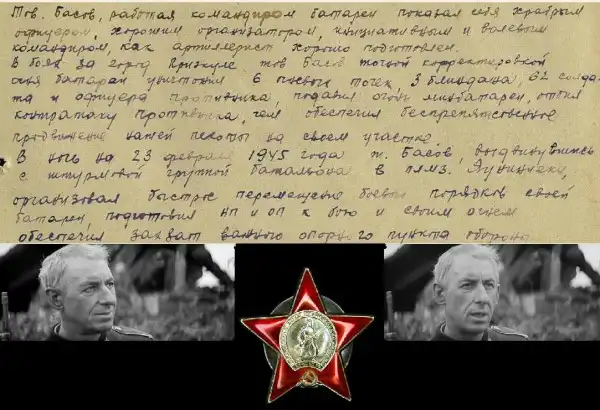 Тов. Басов, работая командиром батареи показал себя храбрым
офицером, хорошим организатором, инициативным и волевым
командиром, как артиллерист хорошо подготовлен.
В боях за город Приэкуле тов Басов точной корректировкой
огня батареи уничтожил 6 огневых точек, 3 блиндажа, 62 солда-
та и офицера противника, подавил огонь минбатареи, отбил
контратаку противника, чем обеспечил беспрепятственное
продвижение нашей пехоты на своем участке.
В ночь на 23 февраля 1945 года т. Басов, выдвинувшись
с штурмовой группой батальона в
организовал быстрое перемещение боевых порядков своей
батареи, подготовил НП и ОП к бою и своим огнем
обеспечил захват важного опорного пункта обороны